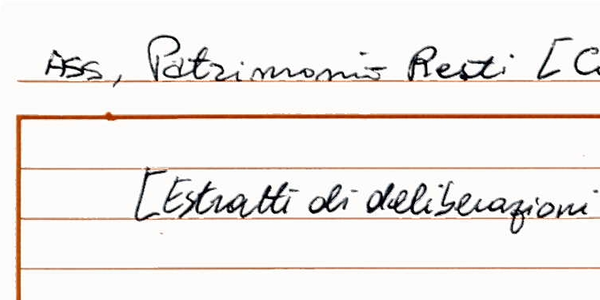 Ass, Patrimonio Resti [C
[Estratti di deliberazioni